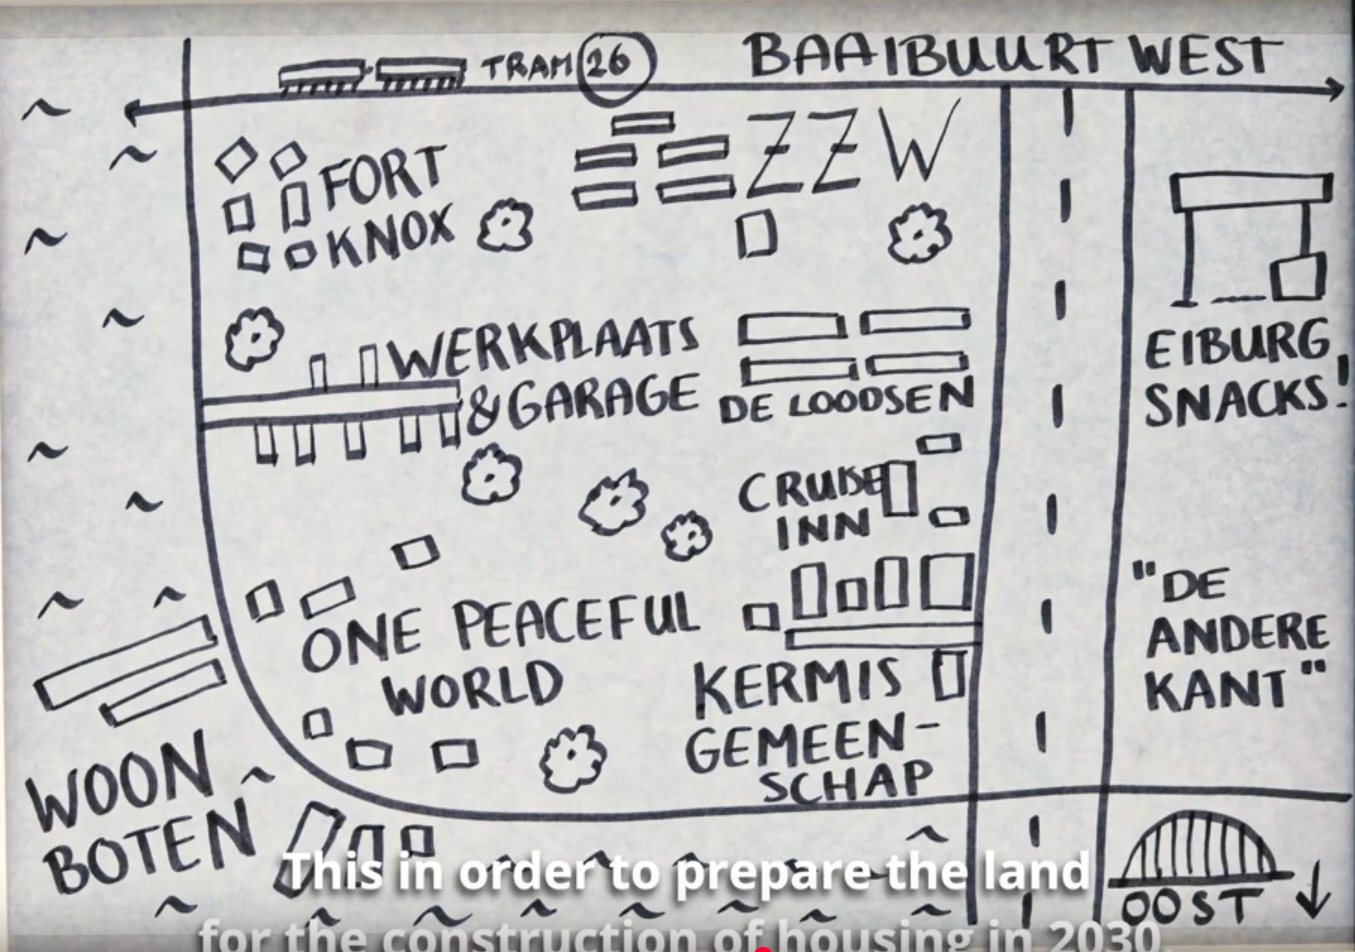 TRAM 26
BAAIBUURT WEST
FORT
KNOX
ZZW
WERKPLAATS
& GARAGE
DE LOODSEN
EIBURG
SNACKS!
CRUISE
INN
"DE
ANDERE
KANT"
ONE PEACEFUL
WORLD
KERMIS
GEMEEN-
SCHAP
WOON
BOTEN
OOST
This in order to prepare the land
for the construction of housing in 2030